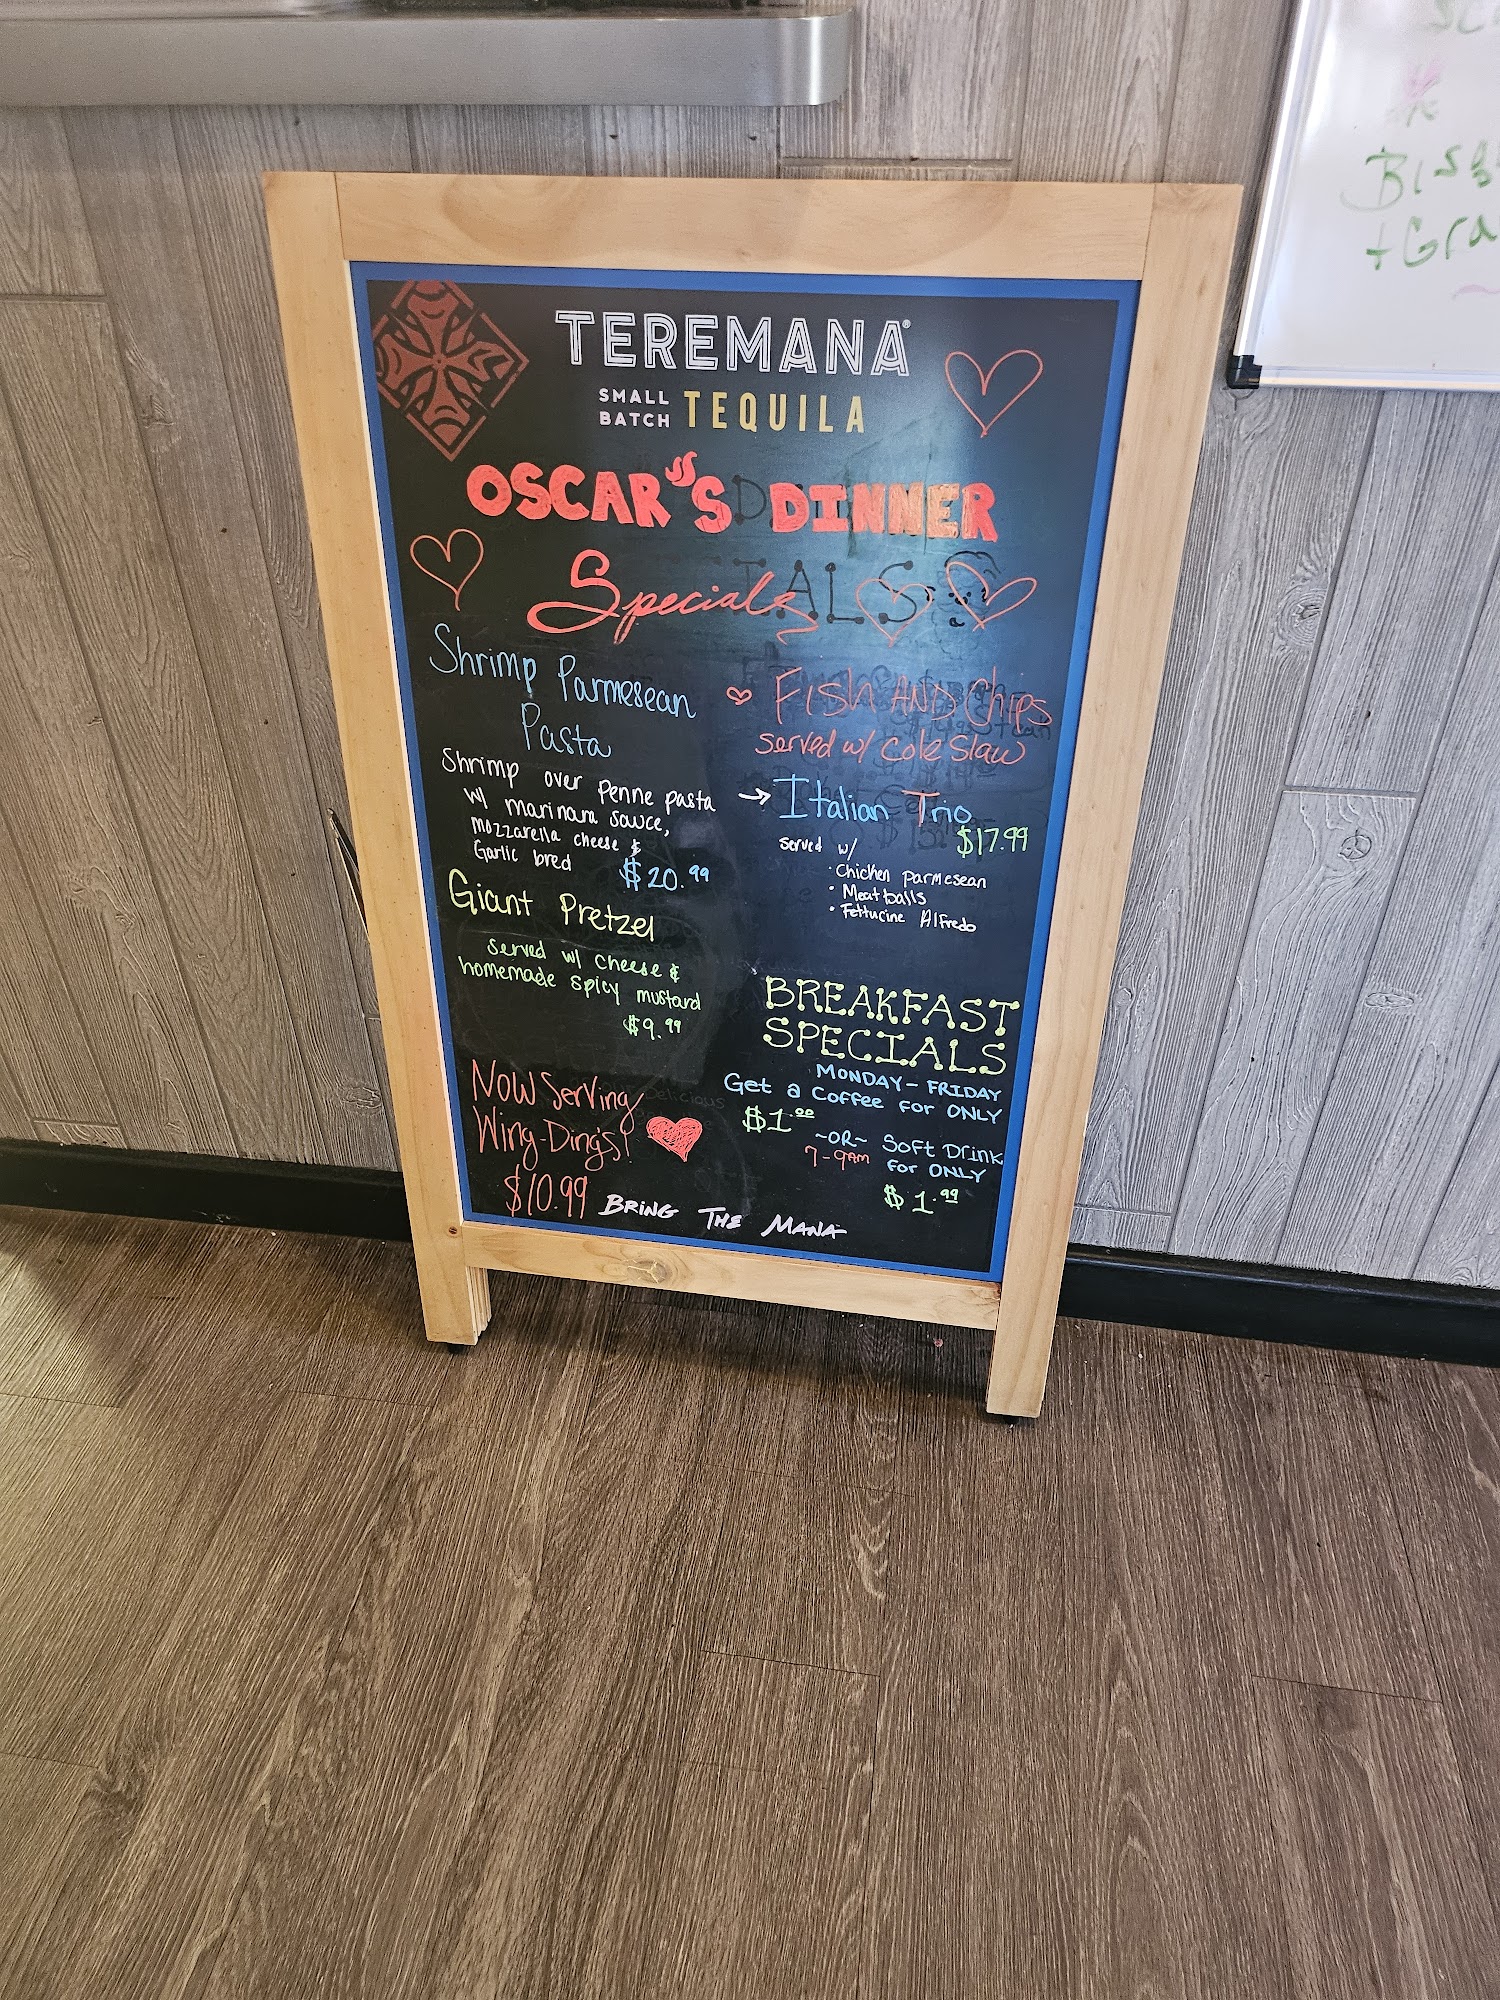 TEREMANA®
SMALL BATCH TEQUILA
OSCAR'S DINNER
Specials
Shrimp Parmesean
Pasta
Shrimp over penne pasta
w/ marinara sauce,
mozzarella cheese &
Garlic bred $20.99
Giant Pretzel
served w/ cheese &
homemade spicy mustard
$9.99
Now Serving
Wing-Ding's!
$10.99
Fish AND Chips
Served w/ Cole Slaw
→ Italian Trio
$17.99
served w/
· Chicken parmesean
· Meatballs
· Fettucine Alfredo
BREAKFAST
SPECIALS
MONDAY - FRIDAY
Get a Coffee for ONLY
$1.00
~OR~ Soft Drink
7-9AM for ONLY
$1.99
BRING THE MANA
+Gra